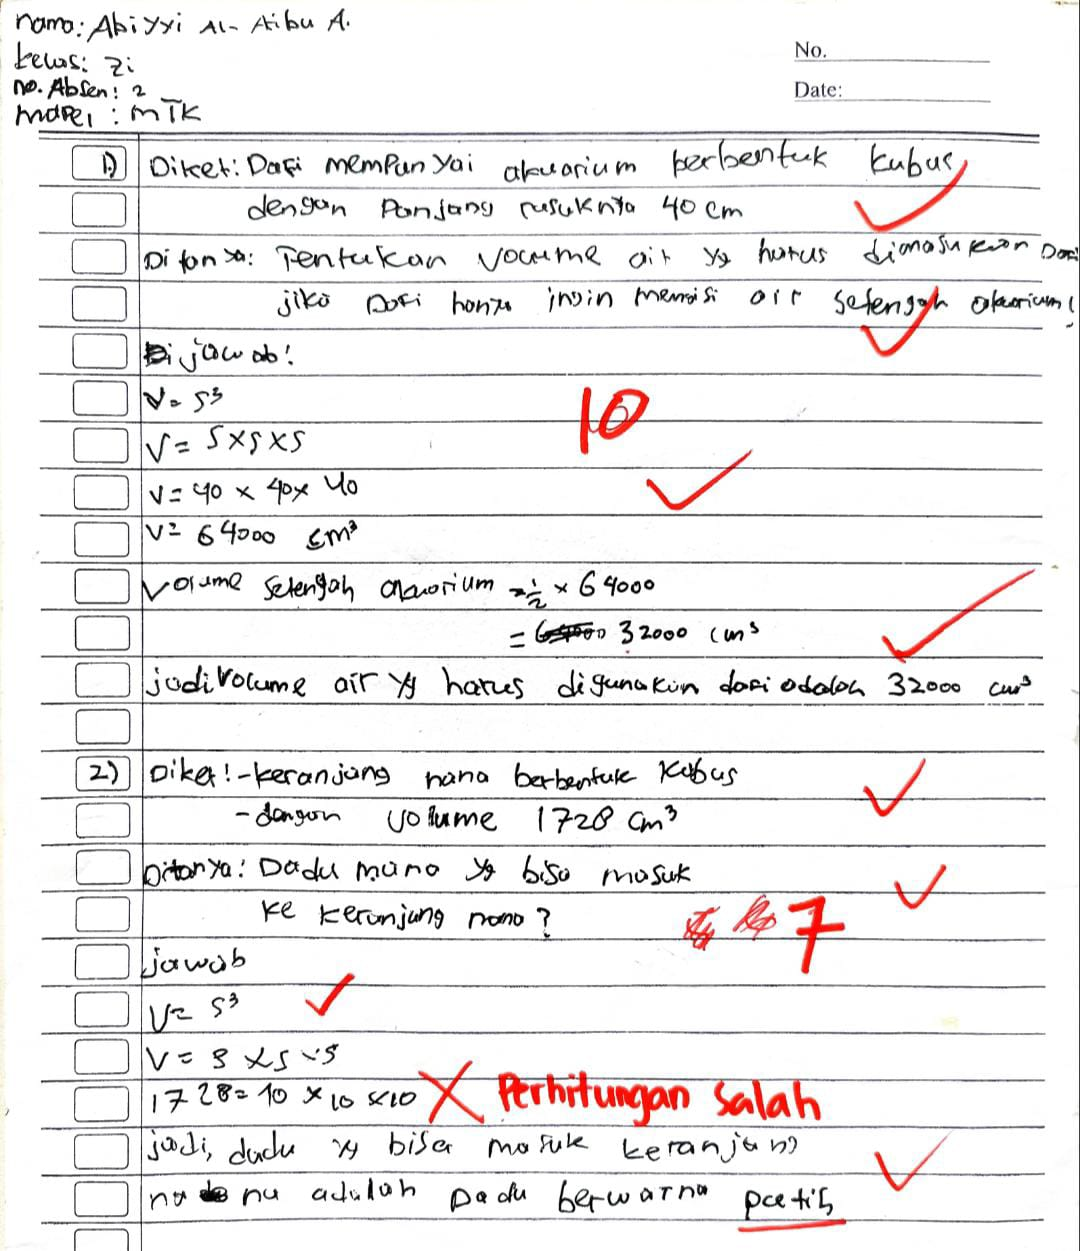 nama: Abiyyi Al- Aibu A.
kelas: 7i
no. Absen: 2
mapel: MTK
No.
Date:
1) Diket: Dafi mempunyai akuarium berbentuk kubus
dengan Panjang rusuknya 40 cm
Ditanya: Tentukan volume air yg harus dimasukkan Dafi
jika Dafi hanya ingin mengisi air setengah akuarium!
Dijawab:
V = s³
V = s x s x s
V = 40 x 40 x 40
V = 64000 cm³
10
Volume setengah akuarium = 1/2 x 64000
= 32000 cm³
jadi volume air yg harus digunakan dafi adalah 32000 cm³
2) Diket: - keranjang nana berbentuk kubus
- dengan volume 1728 cm³
Ditanya: Dadu mana yg bisa masuk
ke keranjang nana?
7
jawab
V = s³
V = s x s x s
1728 = 10 x 10 x 10 X Perhitungan Salah
jadi, dadu yg bisa masuk keranjang
na nu adalah Dadu berwarna putih